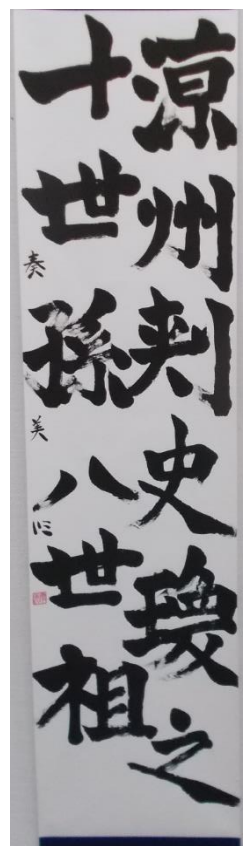 涼州刺史瓊之
十世孫八世祖
奏美